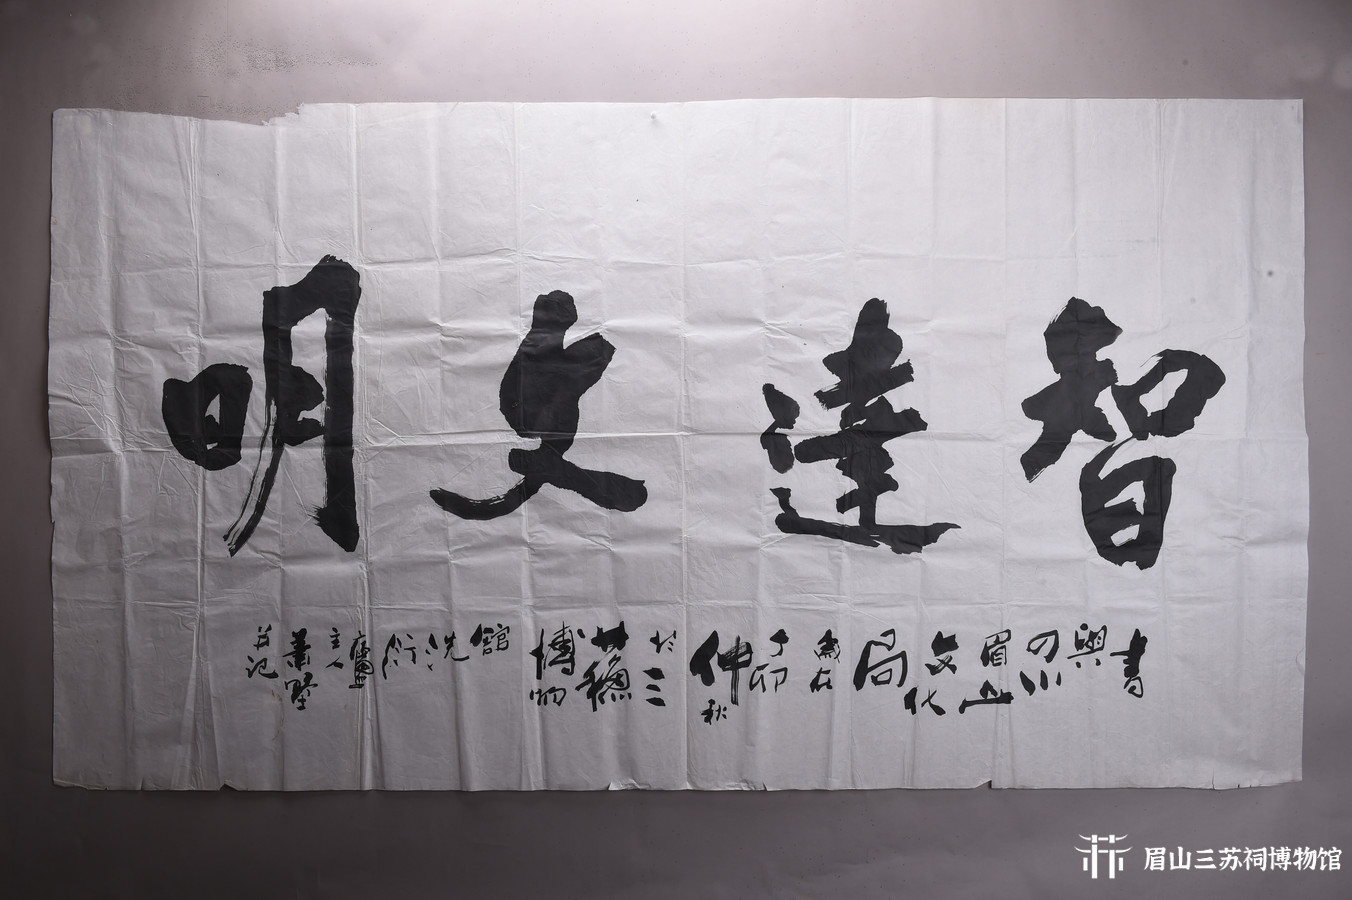 智達文明
書與四川眉山文化局歲在丁卯仲秋於三蘇博物館洗廬主人蕭墅并记
眉山三苏祠博物馆